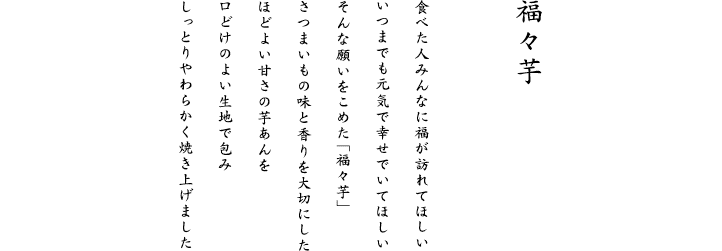 福々芋
食べた人みんなに福が訪れてほしい
いつまでも元気で幸せでいてほしい
そんな願いをこめた「福々芋」
さつまいもの味と香りを大切にした
ほどよい甘さの芋あんを
口どけのよい生地で包み
しっとりやわらかく焼き上げました